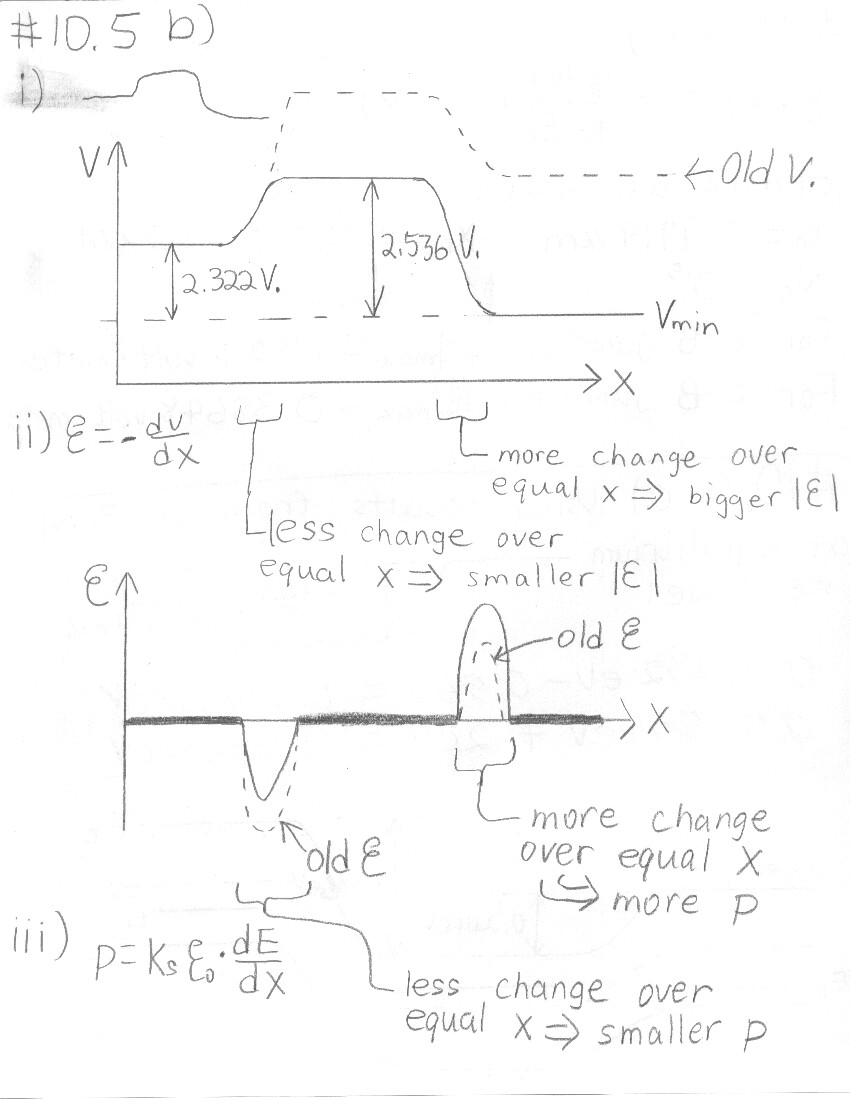 #10.5 b)
i)
V
← Old V.
2.322 V.
2.536 V.
Vmin
X
ii) ℰ = - dV/dX
more change over
equal x ⇒ bigger |ℰ|
less change over
equal x ⇒ smaller |ℰ|
ℰ
old ℰ
X
old ℰ
more change
over equal X
↪ more p
iii) p = Ks ℰ₀ · dE/dX
less change over
equal x ⇒ smaller p